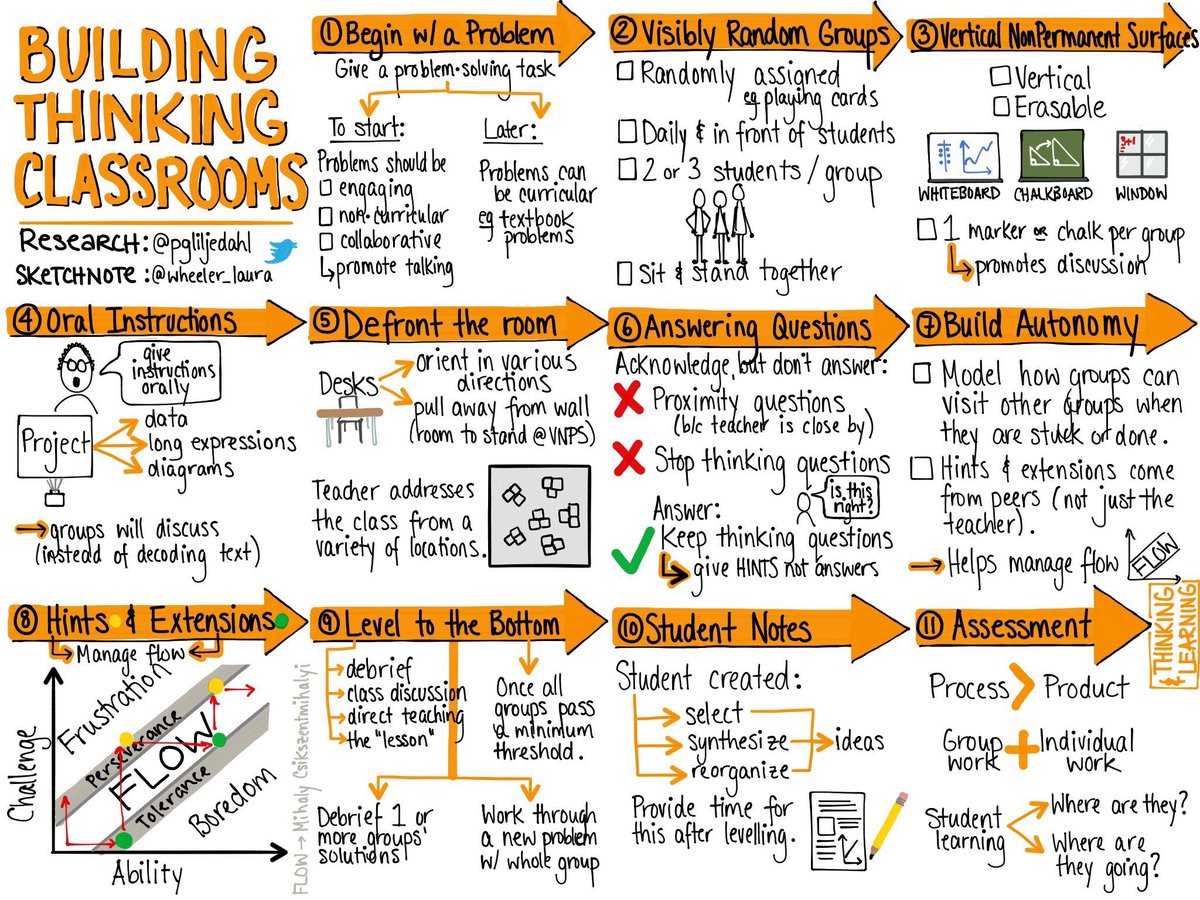 BUILDING
THINKING
CLASSROOMS
RESEARCH: @pgliljedahl
SKETCHNOTE: @wheeler_laura
① Begin w/ a Problem
Give a problem-solving task
To start:
Problems should be
engaging
non-curricular
collaborative
↳promote talking
Later:
Problems can
be curricular
eg textbook
problems
② Visibly Random Groups
Randomly assigned
eg playing cards
Daily & in front of students
2 or 3 students / group
Sit & stand together
③ Vertical NonPermanent Surfaces
Vertical
Erasable
WHITEBOARD
CHALKBOARD
WINDOW
1 marker or chalk per group
promotes discussion
④ Oral Instructions
give
instructions
orally
Project
data
long expressions
diagrams
→ groups will discuss
(instead of decoding text)
⑤ Defront the room
Desks
orient in various
directions
pull away from wall
(room to stand @VNPS)
Teacher addresses
the class from a
variety of locations.
⑥ Answering Questions
Acknowledge, but don't answer:
Proximity questions
(b/c teacher is close by)
Stop thinking questions
is this
right?
Answer:
Keep thinking questions
give HINTS not answers
⑦ Build Autonomy
Model how groups can
visit other groups when
they are stuck or done.
Hints & extensions come
from peers (not just the
teacher).
→ Helps manage flow
FLOW
⑧ Hints & Extensions
Manage flow
Challenge
Frustration
Perseverance
FLOW
Tolerance
Boredom
Ability
FLOW → Mihaly Csikszentmihalyi
⑨ Level to the Bottom
debrief
class discussion
direct teaching
the "lesson"
Once all
groups pass
a minimum
threshold.
Debrief 1 or
more groups'
solutions
Work through
a new problem
w/ whole group
⑩ Student Notes
Student created:
select
synthesize
reorganize
ideas
Provide time for
this after levelling.
⑪ Assessment
THINKING
& LEARNING
Process > Product
Group
work
+
Individual
work
Student
learning
Where are they?
Where are
they going?